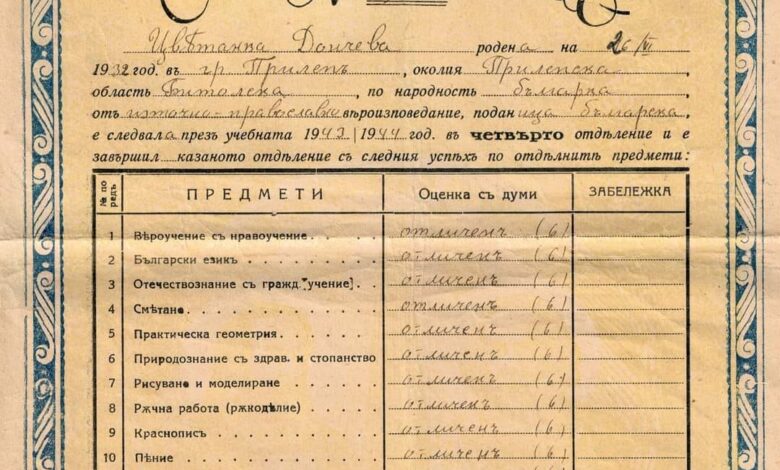 Цвѣтанка Дончева родена на 26/VI
1932 год. въ гр. Прилепъ, околия Прилепска,
область Битолска, по народность българка,
отъ източно-православно вѣроизповедание, поданица българска,
е следвала презъ учебната 1943/1944 год. въ четвърто отдѣление и е
завършил казаното отдѣление съ следния успѣхъ по отдѣлнитѣ предмети:
№ по редъ ПРЕДМЕТИ Оценка съ думи ЗАБЕЛЕЖКА
1 Вѣроучение съ нравоучение отличенъ (6)
2 Български езикъ отличенъ (6)
3 Отечествознание съ гражд. учение] отличенъ (6)
4 Смѣтане отличенъ (6)
5 Практическа геометрия отличенъ (6)
6 Природознание съ здрав. и стопанство отличенъ (6)
7 Рисуване и моделиране отличенъ (6)
8 Рѫчна работа (рѫкодѣлие) отличенъ (6)
9 Краснописъ отличенъ (6)
10 Пѣние отличенъ (6)